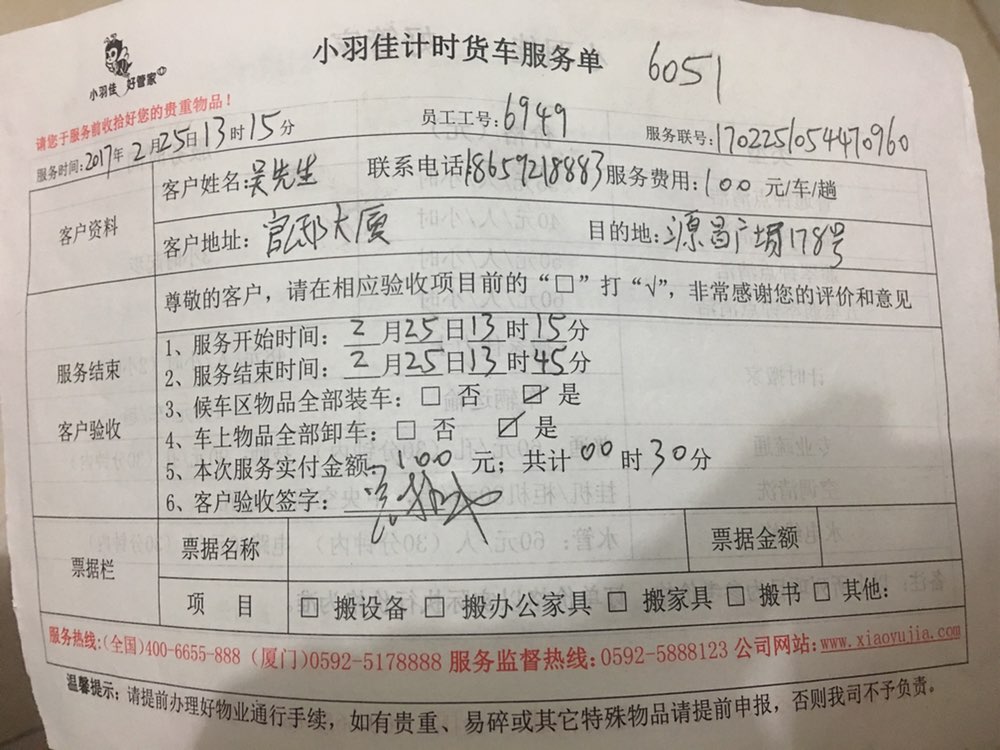 小羽佳 好管家
小羽佳计时货车服务单 6051
请您于服务前收拾好您的贵重物品！
员工工号：6949
服务时间：2017年2月25日13时15分 服务联号：1702251054470960
客户资料
客户姓名：吴先生 联系电话18659218883服务费用：100元/车/趟
客户地址：官邸大厦 目的地：源昌广场178号
服务结束
客户验收
尊敬的客户，请在相应验收项目前的“□”打“√”，非常感谢您的评价和意见
1、服务开始时间：2月25日13时15分
2、服务结束时间：2月25日13时45分
3、候车区物品全部装车：□ 否 ☑ 是
4、车上物品全部卸车：□ 否 ☑ 是
5、本次服务实付金额：100元；共计00时30分
6、客户验收签字：
票据栏
票据名称 票据金额
项 目 □ 搬设备 □ 搬办公家具 □ 搬家具 □ 搬书 □ 其他：
服务热线：(全国)400-6655-888 (厦门)0592-5178888 服务监督热线：0592-5888123 公司网站：www.xiaoyujia.com
温馨提示：请提前办理好物业通行手续，如有贵重、易碎或其它特殊物品请提前申报，否则我司不予负责。